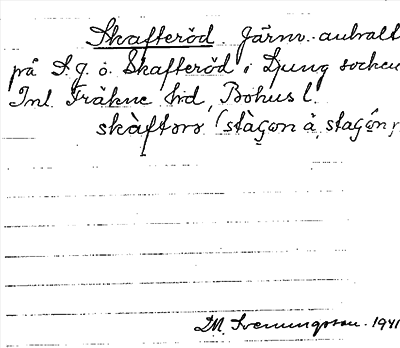 Skafteröd. Järnv.-anhalt
på S. J. o. Skafteröd i Ljung socken
Inl. Fräkne hd, Bohusl.
skàftorø (stàgon å, stagón,
D.M. Svenungsson. 1941